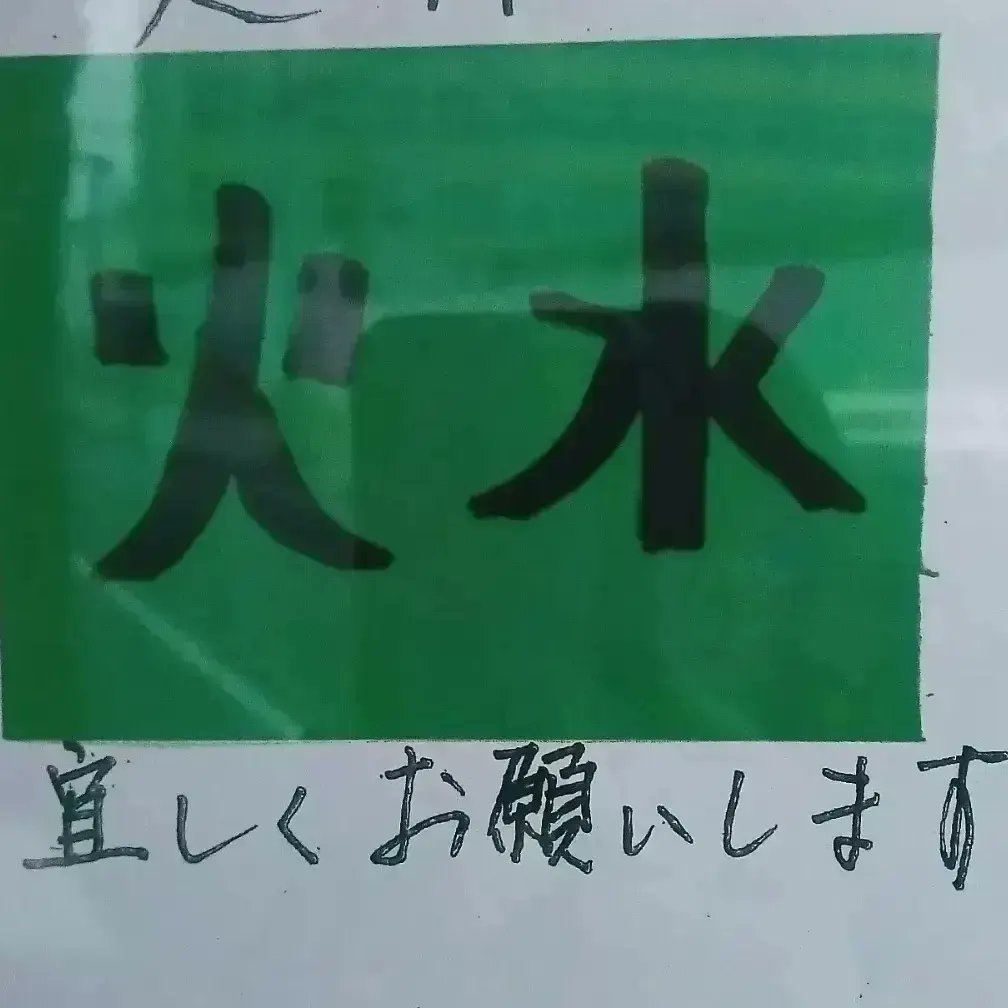 火水
宜しくお願いします